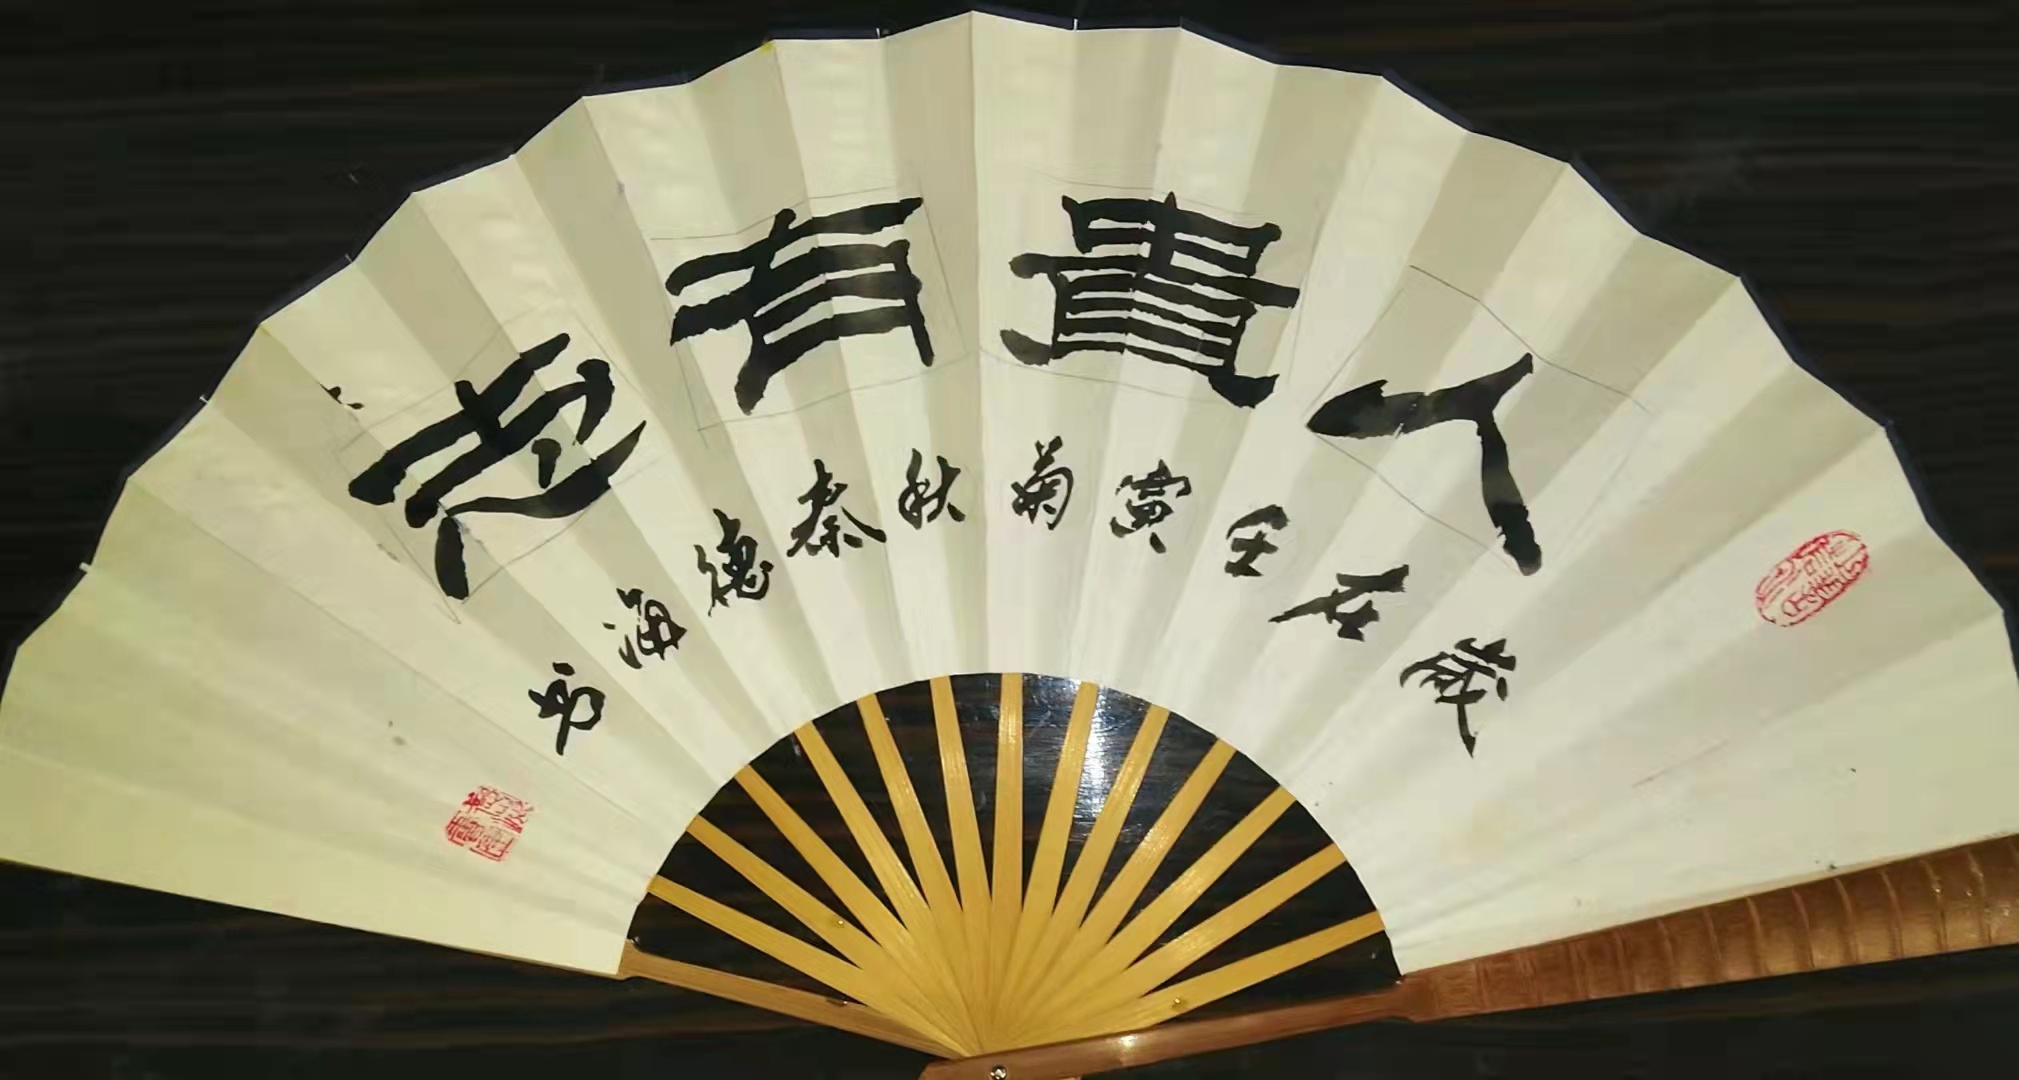 人貴有志
歲在壬寅菊秋秦德海书